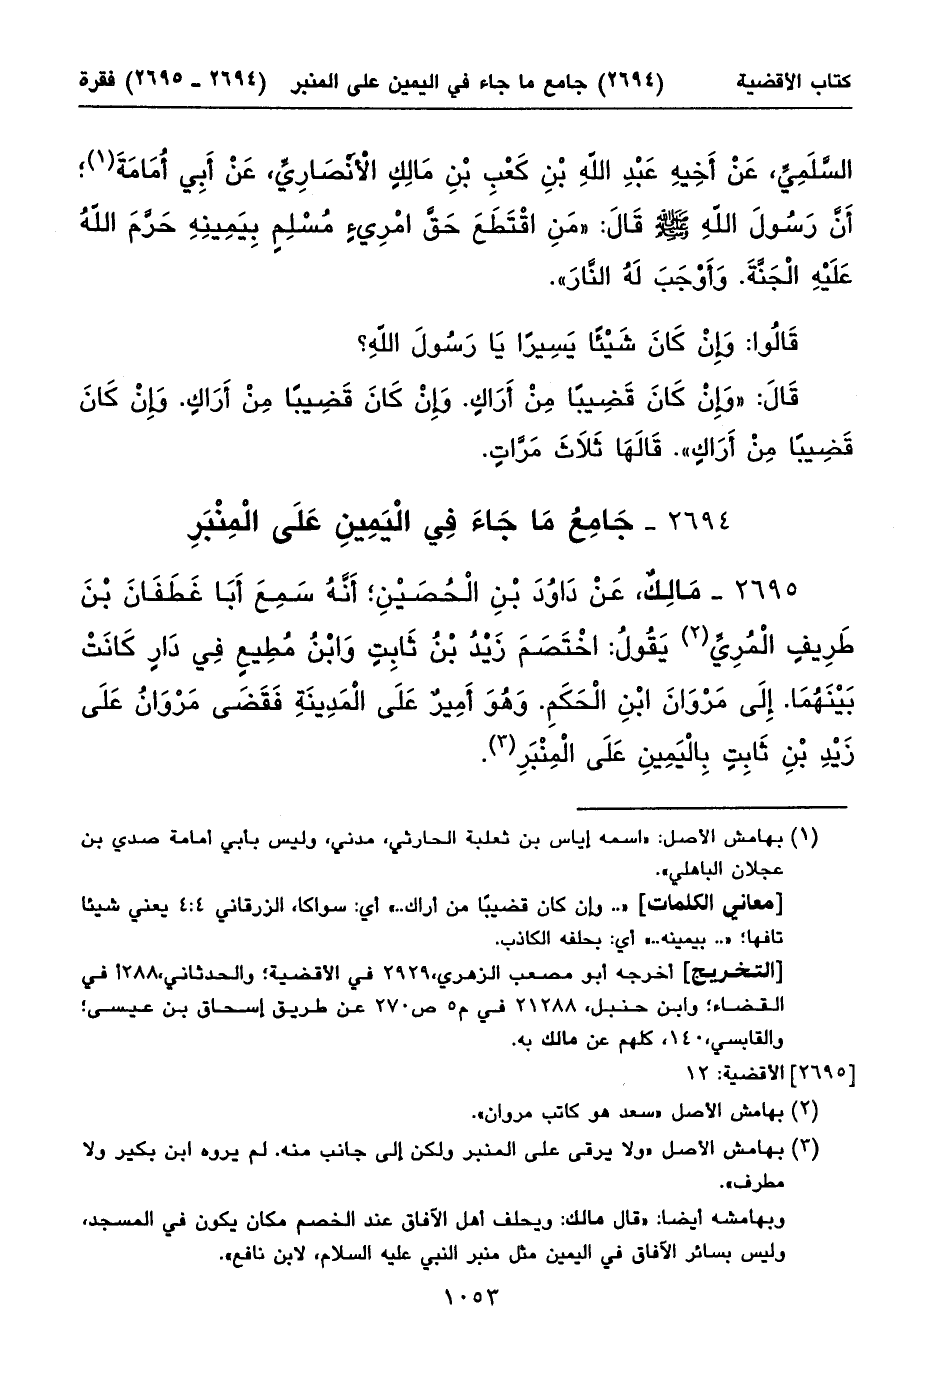 كتاب الاقضية (٢٦٩٤) جامع ما جاء في اليمين على المنبر (٢٦٩٤ - ٢٦٩٥) فقرة
السَّلَمِيِّ، عَنْ أَخِيهِ عَبْدِ اللَّهِ بْنِ كَعْبِ بْنِ مَالِكٍ الْأَنْصَارِيِّ، عَنْ أَبِي أُمَامَةَ(١)؛
أَنَّ رَسُولَ اللَّهِ ﷺ قَالَ: «مَنِ اقْتَطَعَ حَقَّ امْرِيءٍ مُسْلِمٍ بِيَمِينِهِ حَرَّمَ اللَّهُ
عَلَيْهِ الْجَنَّةَ. وَأَوْجَبَ لَهُ النَّارَ».
قَالُوا: وَإِنْ كَانَ شَيْئًا يَسِيرًا يَا رَسُولَ اللَّهِ؟
قَالَ: «وَإِنْ كَانَ قَضِيبًا مِنْ أَرَاكٍ. وَإِنْ كَانَ قَضِيبًا مِنْ أَرَاكٍ. وَإِنْ كَانَ
قَضِيبًا مِنْ أَرَاكٍ». قَالَهَا ثَلَاثَ مَرَّاتٍ.
٢٦٩٤ - جَامِعُ مَا جَاءَ فِي الْيَمِينِ عَلَى الْمِنْبَرِ
٢٦٩٥ - مَالِكٌ، عَنْ دَاوُدَ بْنِ الْحُصَيْنِ؛ أَنَّهُ سَمِعَ أَبَا غَطَفَانَ بْنَ
طَرِيفٍ الْمُرِيِّ(٢) يَقُولُ: اخْتَصَمَ زَيْدُ بْنُ ثَابِتٍ وَابْنُ مُطِيعٍ فِي دَارٍ كَانَتْ
بَيْنَهُمَا. إِلَى مَرْوَانَ ابْنِ الْحَكَمِ. وَهُوَ أَمِيرٌ عَلَى الْمَدِينَةِ فَقَضَى مَرْوَانُ عَلَى
زَيْدِ بْنِ ثَابِتٍ بِالْيَمِينِ عَلَى الْمِنْبَرِ(٣).
(١) بهامش الاصل: «اسمه إياس بن ثعلبة الحارثي، مدني، وليس بأبي امامة صدي بن
عجلان الباهلي».
[معاني الكلمات] «.. وإن كان قضيبًا من أراك..» أي: سواكا، الزرقاني ٤:٤ يعني شيئا
تافها؛ «.. بيمينه..» أي: بحلفه الكاذب.
[التخريج] أخرجه أبو مصعب الزهري،٢٩٢٩ في الاقضية؛ والحدثاني،٢٨٨أ في
القضاء؛ وابن حنبل، ٢١٢٨٨ في م٥ ص٢٧٠ عن طريق إسحاق بن عيسى؛
والقابسي،١٤٠، كلهم عن مالك به.
[٢٦٩٥] الاقضية: ١٢
(٢) بهامش الاصل «سعد هو كاتب مروان».
(٣) بهامش الاصل «ولا يرقى على المنبر ولكن إلى جانب منه. لم يروه ابن بكير ولا
مطرف».
وبهامشه أيضا: «قال مالك: ويحلف أهل الآفاق عند الخصم مكان يكون في المسجد،
وليس بسائر الآفاق في اليمين مثل منبر النبي عليه السلام، لابن نافع».
١٠٥٣